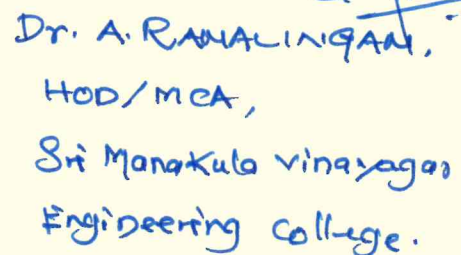 Dr. A. RAMALINGAM,
HOD/MCA,
Sri Manakula vinayagar
Engineering College.